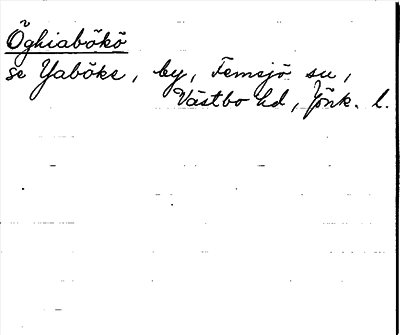 Öghiabökö
se Yaböke, by, Femsjö sn,
Västbo hd, Jönk. l.